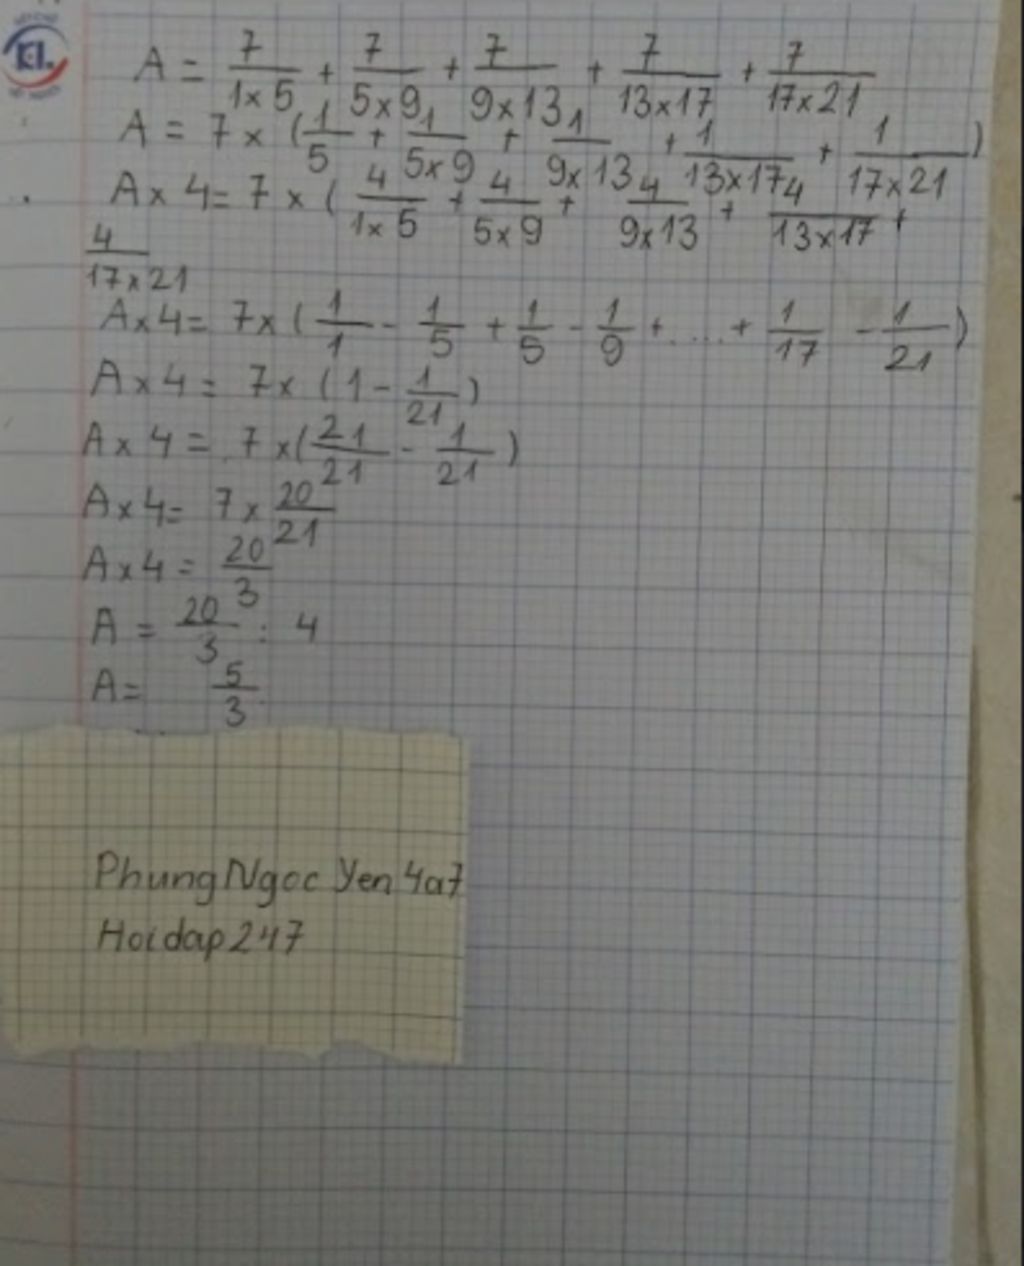 KL
A = 7/(1×5) + 7/(5×9) + 7/(9×13) + 7/(13×17) + 7/(17×21)
A = 7 × (1/5 + 1/(5×9) + 1/(9×13) + 1/(13×17) + 1/(17×21))
A × 4 = 7 × (4/(1×5) + 4/(5×9) + 4/(9×13) + 4/(13×17) +
4/(17×21)
A × 4 = 7 × (1/1 - 1/5 + 1/5 - 1/9 + .... + 1/17 - 1/21)
A × 4 = 7 × (1 - 1/21)
A × 4 = 7 × (21/21 - 1/21)
A × 4 = 7 × 20/21
A × 4 = 20/3
A = 20/3 : 4
A = 5/3
Phung Ngoc Yen 4a7
Hoidap247